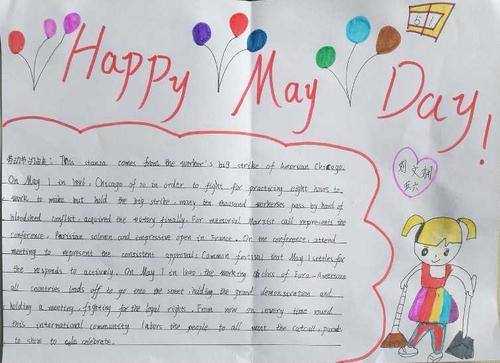 Happy May Day!
51
: This stanza comes from the worker's big strike of American Chicago.
On May 1 in 1886, Chicago of 20 in order to fight for practicing eight hours to
work to make but hold the big strike, many ten thousand workerses pass by hard of
bloodshed conflict, acquired the victory finally. For memorial Marxist call represents the
conference, Parisian solemn and impressive open in France. On the conference, attend
meeting to represent the consistent approval: Common festival that May 1 settles for
the responds to actively. On May 1 in 1890 the working class of Euro-American
all countries lends off to go into the street, holding the grand demonstration and
holding a meeting, fighting for the legal rights. From now on every time round
this international community labors the people to all want the catcall, parade
to show to celebrate.
刘文
五六